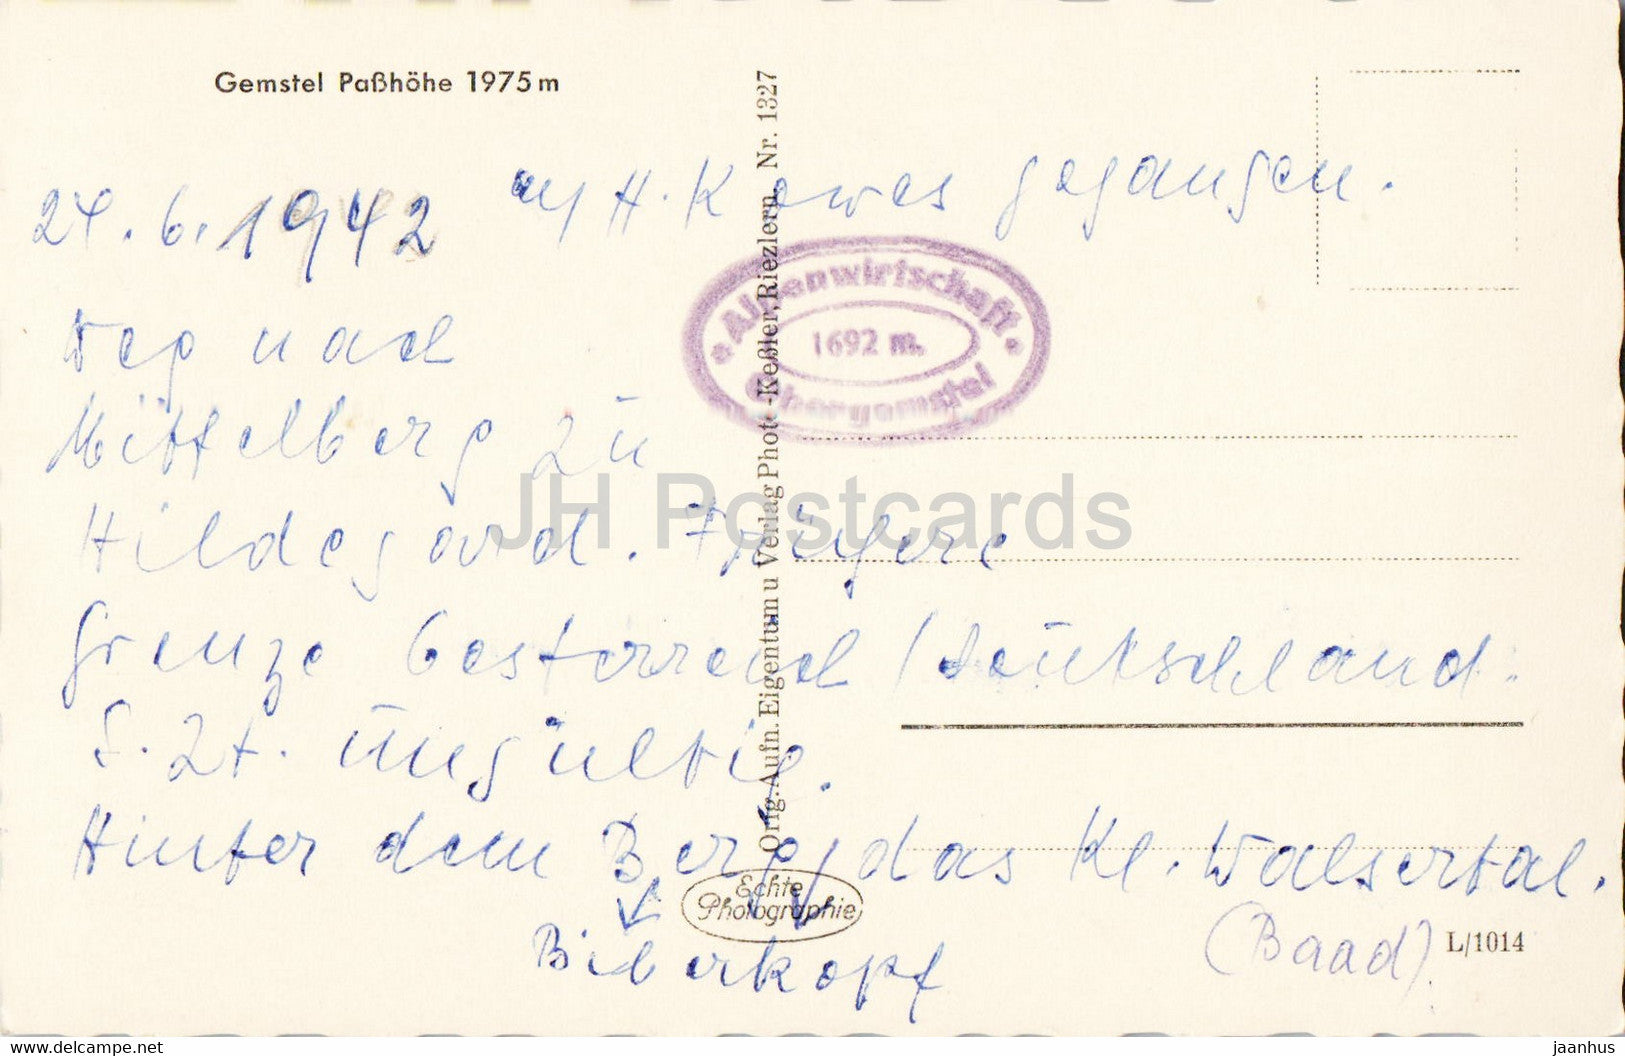 Gemstel Paßhöhe 1975 m
24.6.1942 H. Kowes gegangen.
Weg nach
Mittelberg zu
Hildegard. Frühere
Grenze Oesterreich / Deutschland.
z. Zt. ungültig.
Hinter dem Berg, das Kl. Walsertal.
Biberkopf
(Baad)
Alpenwirtschaft
1692 m.
Obergemstel
Orig. Aufn. Eigentum u Verlag Photo-Keßler, Riezlern. Nr. 1327
Echte
Photographie
L/1014
JH Postcards
www.delcampe.net
jaanhus